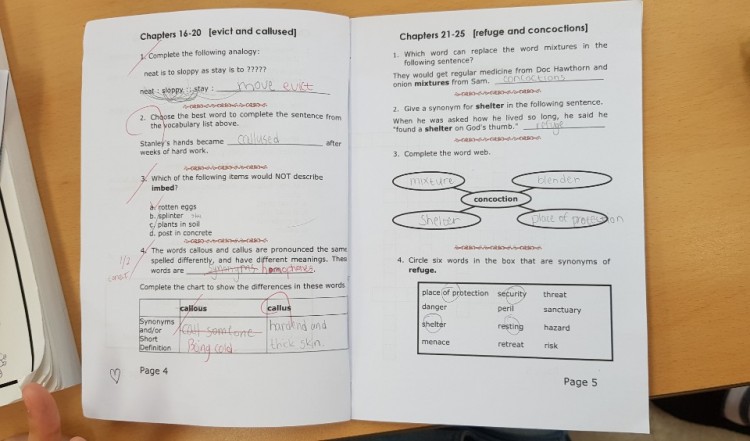 Chapters 16-20 [evict and callused]
1. Complete the following analogy:
neat is to sloppy as stay is to ?????
neat : sloppy :: stay : move evict
2. Choose the best word to complete the sentence from
the vocabulary list above.
Stanley's hands became callused after
weeks of hard work.
3. Which of the following items would NOT describe
imbed?
a. rotten eggs
b. splinter
c. plants in soil
d. post in concrete
4. The words callous and callus are pronounced the same
spelled differently, and have different meanings. Thes
words are synonyms homophones.
1/2
Complete the chart to show the differences in these words
callous callus
Synonyms
and/or
Short
Definition
call somtone
Being cold
hardend and
thick skin.
Page 4
Chapters 21-25 [refuge and concoctions]
1. Which word can replace the word mixtures in the
following sentence?
They would get regular medicine from Doc Hawthorn and
onion mixtures from Sam. concoctions
2. Give a synonym for shelter in the following sentence.
When he was asked how he lived so long, he said he
"found a shelter on God's thumb." refuge
3. Complete the word web.
mixture blender
concoction
Shelter place of protection
4. Circle six words in the box that are synonyms of
refuge.
place of protection security threat
danger peril sanctuary
shelter resting hazard
menace retreat risk
Page 5